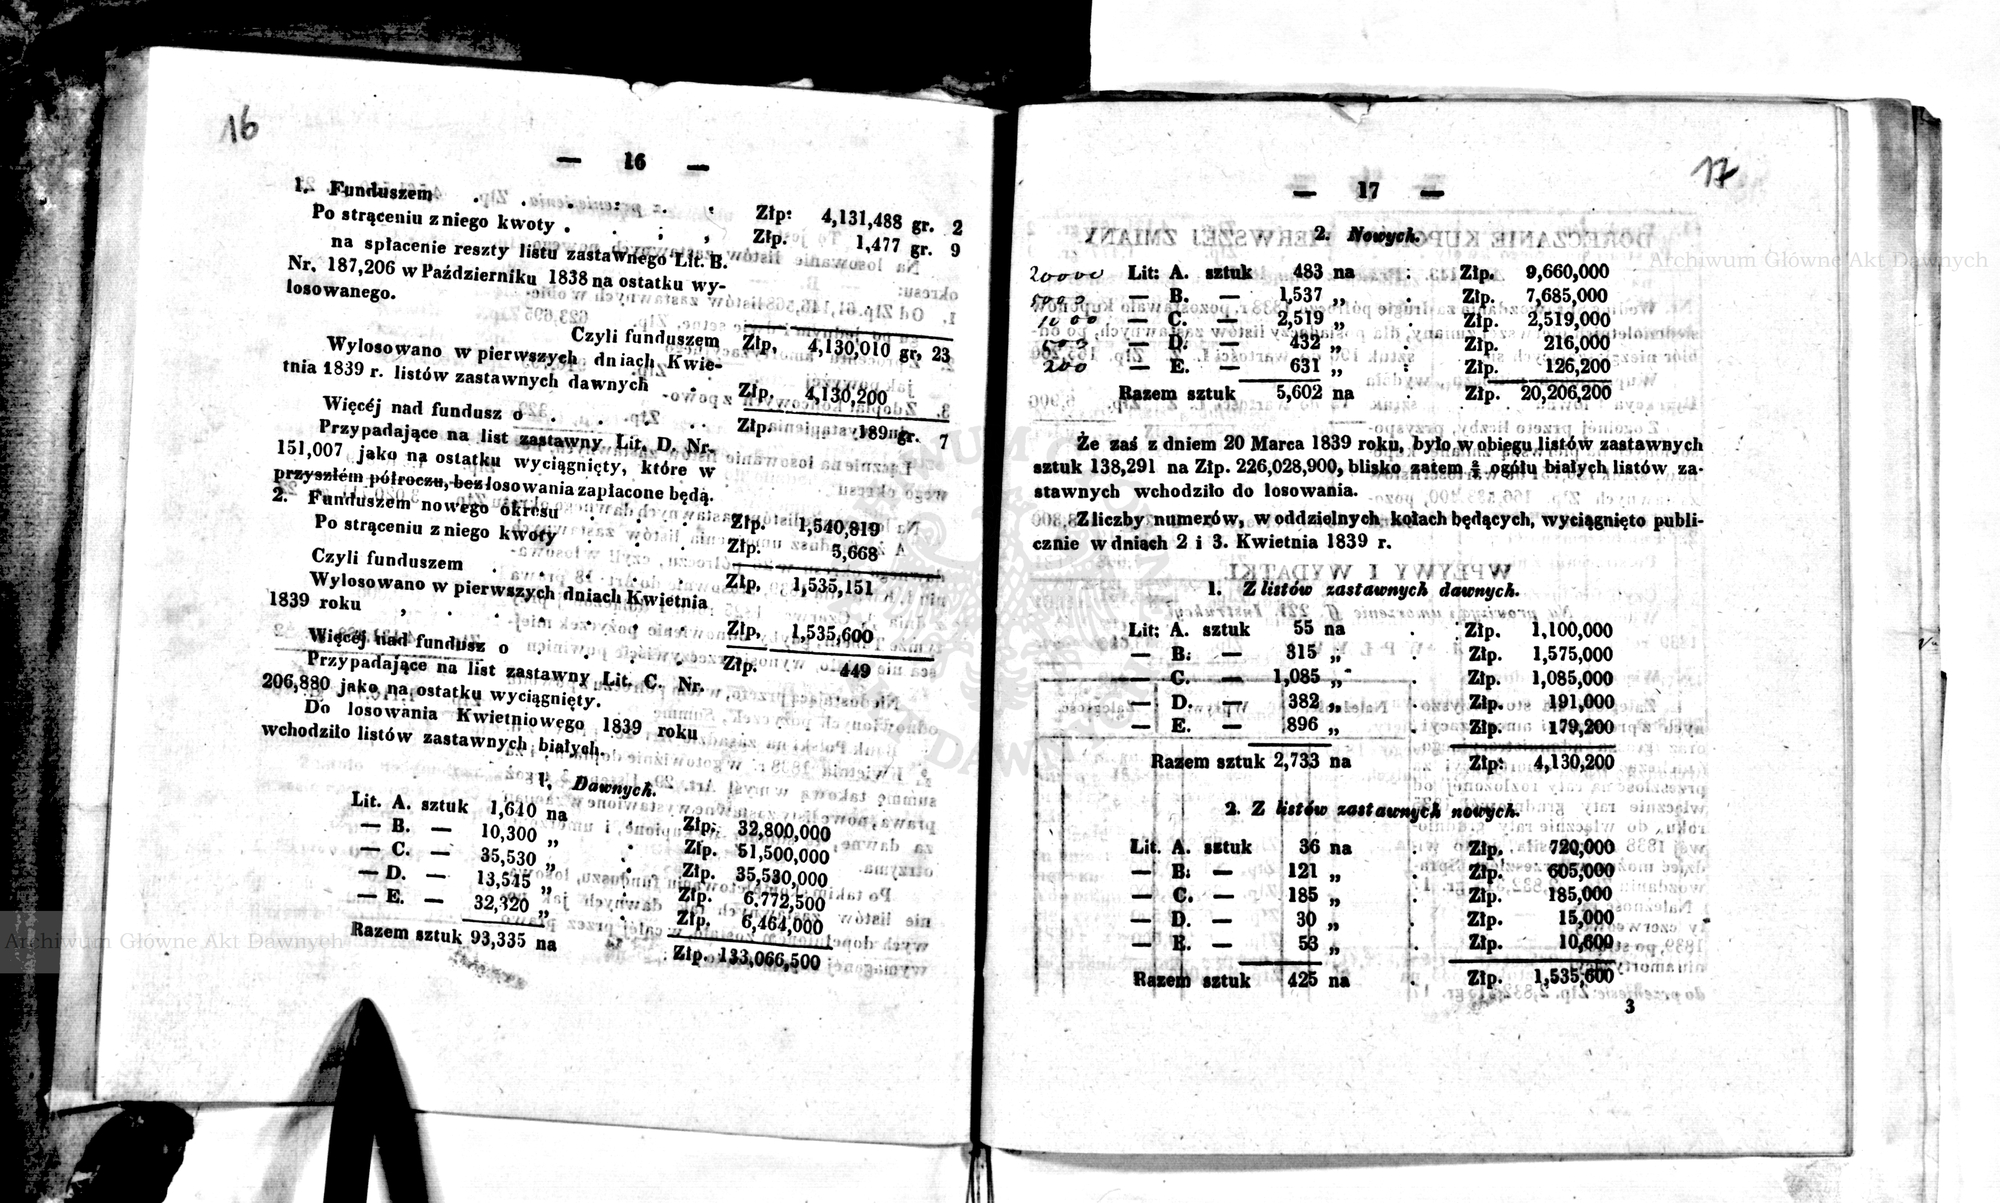 16
— 16 —
1. Funduszem . . . . . . Złp: 4,131,488 gr. 2
Po strąceniu z niego kwoty . . ; , Złp. 1,477 gr. 9
na spłacenie reszty listu zastawnego Lit. B.
Nr. 187,206 w Październiku 1838 na ostatku wy-
losowanego.
Czyli funduszem Złp, 4,130,010 gr, 23
Wylosowano w pierwszych dniach Kwie-
tnia 1839 r. listów zastawnych dawnych . Złp, 4,130,200
Więcéj nad fundusz o . . . . . Złp. 189 gr. 7
Przypadające na list zastawny Lit. D. Nr.
151,007 jako na ostatku wyciągnięty, które w
przyszłém półroczu, bez losowania zapłacone będą.
2. Funduszem nowego okresu . . . . Złp. 1,540,819
Po strąceniu z niego kwoty . . . Złp. 5,668
Czyli funduszem . . . . . Złp, 1,535,151
Wylosowano w pierwszych dniach Kwietnia
1839 roku , . . . . . . Złp, 1,535,600
Więcéj nad fundusz o . . . . . Złp. 449
Przypadające na list zastawny Lit. C. Nr.
206,880 jako na ostatku wyciągnięty.
Do losowania Kwietniowego 1839 roku
wchodziło listów zastawnych białych.
1. Dawnych.
Lit. A. sztuk 1,640 na . Złp. 32,800,000
— B. — 10,300 „ . Złp. 51,500,000
— C. — 35,530 „ . Złp. 35,530,000
— D. — 13,545 „ . Złp. 6,772,500
— E. — 32,320 „ . Złp, 6,464,000
Razem sztuk 93,335 na Złp. 133,066,500
17
— 17 —
2. Nowych.
20000 Lit: A. sztuk 483 na . Złp. 9,660,000
5000 — B. — 1,537 „ . Złp. 7,685,000
1000 — C. — 2,519 „ . Złp. 2,519,000
500 — D. — 432 „ . Złp. 216,000
200 — E. — 631 „ : Złp. 126,200
Razem sztuk 5,602 na . Złp. 20,206,200
Że zaś z dniem 20 Marca 1839 roku, było w obiegu listów zastawnych
sztuk 138,291 na Złp. 226,028,900, blisko zatem ogółu białych listów za-
stawnych wchodziło do losowania.
Z liczby numerów, w oddzielnych kołach będących, wyciągnięto publi-
cznie w dniach 2 i 3. Kwietnia 1839 r.
1. Z listów zastawnych dawnych.
Lit: A. sztuk 55 na . Złp. 1,100,000
— B. — 315 „ . Złp. 1,575,000
— C. — 1,085 „ . Złp. 1,085,000
— D. — 382 „ . Złp. 191,000
— E. — 896 „ . Złp. 179,200
Razem sztuk 2,733 na Złp: 4,130,200
2. Z listów zastawnych nowych.
Lit. A. sztuk 36 na . Złp. 720,000
— B. — 121 „ . Złp. 605,000
— C. — 185 „ . Złp. 185,000
— D. — 30 „ . Złp. 15,000
— E. — 53 „ . Złp. 10,600
Razem sztuk 425 na . Złp. 1,535,600
3
Archiwum Główne Akt Dawnych
Archiwum Główne Akt Dawnych